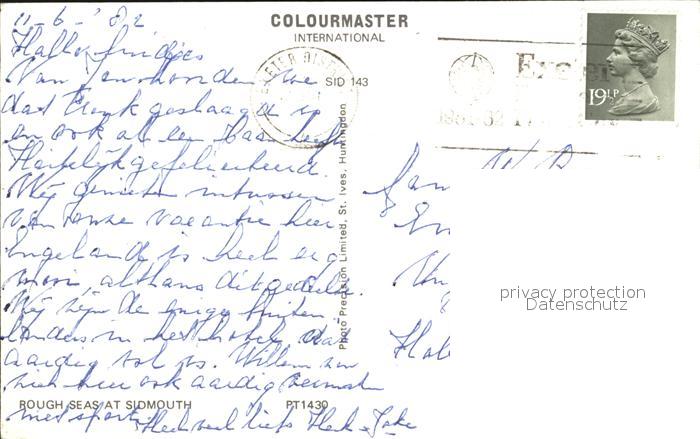 11-6-'82
COLOURMASTER
INTERNATIONAL
Hallo
Van hoorden we
EXETER DIST
SID 143
Exeter
19½P
dat Henk geslaagd is
en ook al een baan heeft
Hartelijk gefeliciteerd.
Wij genieten intussen
van onze vacantie hier
Engeland is heel erg
mooi, althans dit gedeelte.
Wij zijn de enige buiten-
landers in het hotel, dat
aardig vol is. Willem kan
zich hier ook aardig vermaken
met sport. Heel veel liefs
Photo Precision Limited, St. Ives, Huntingdon
privacy protection
Datenschutz
ROUGH SEAS AT SIDMOUTH
PT1430